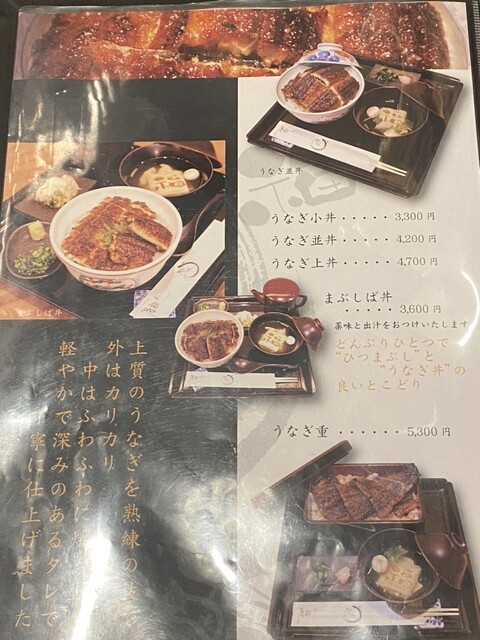 うなぎ並丼
うなぎ小丼・・・・・3,300円
うなぎ並丼・・・・・4,200円
うなぎ上丼・・・・・4,700円
まぶしば丼
・・・・・3,600円
薬味と出汁をおつけいたします
どんぶりひとつで
“ひつまぶし”と
“うなぎ丼”の
良いとこどり
うなぎ重・・・・・・5,300円
まぶしば丼
上質のうなぎを熟練の
外はカリカリ
中はふわふわに
軽やかで深みのあるタレで
寧に仕上げました